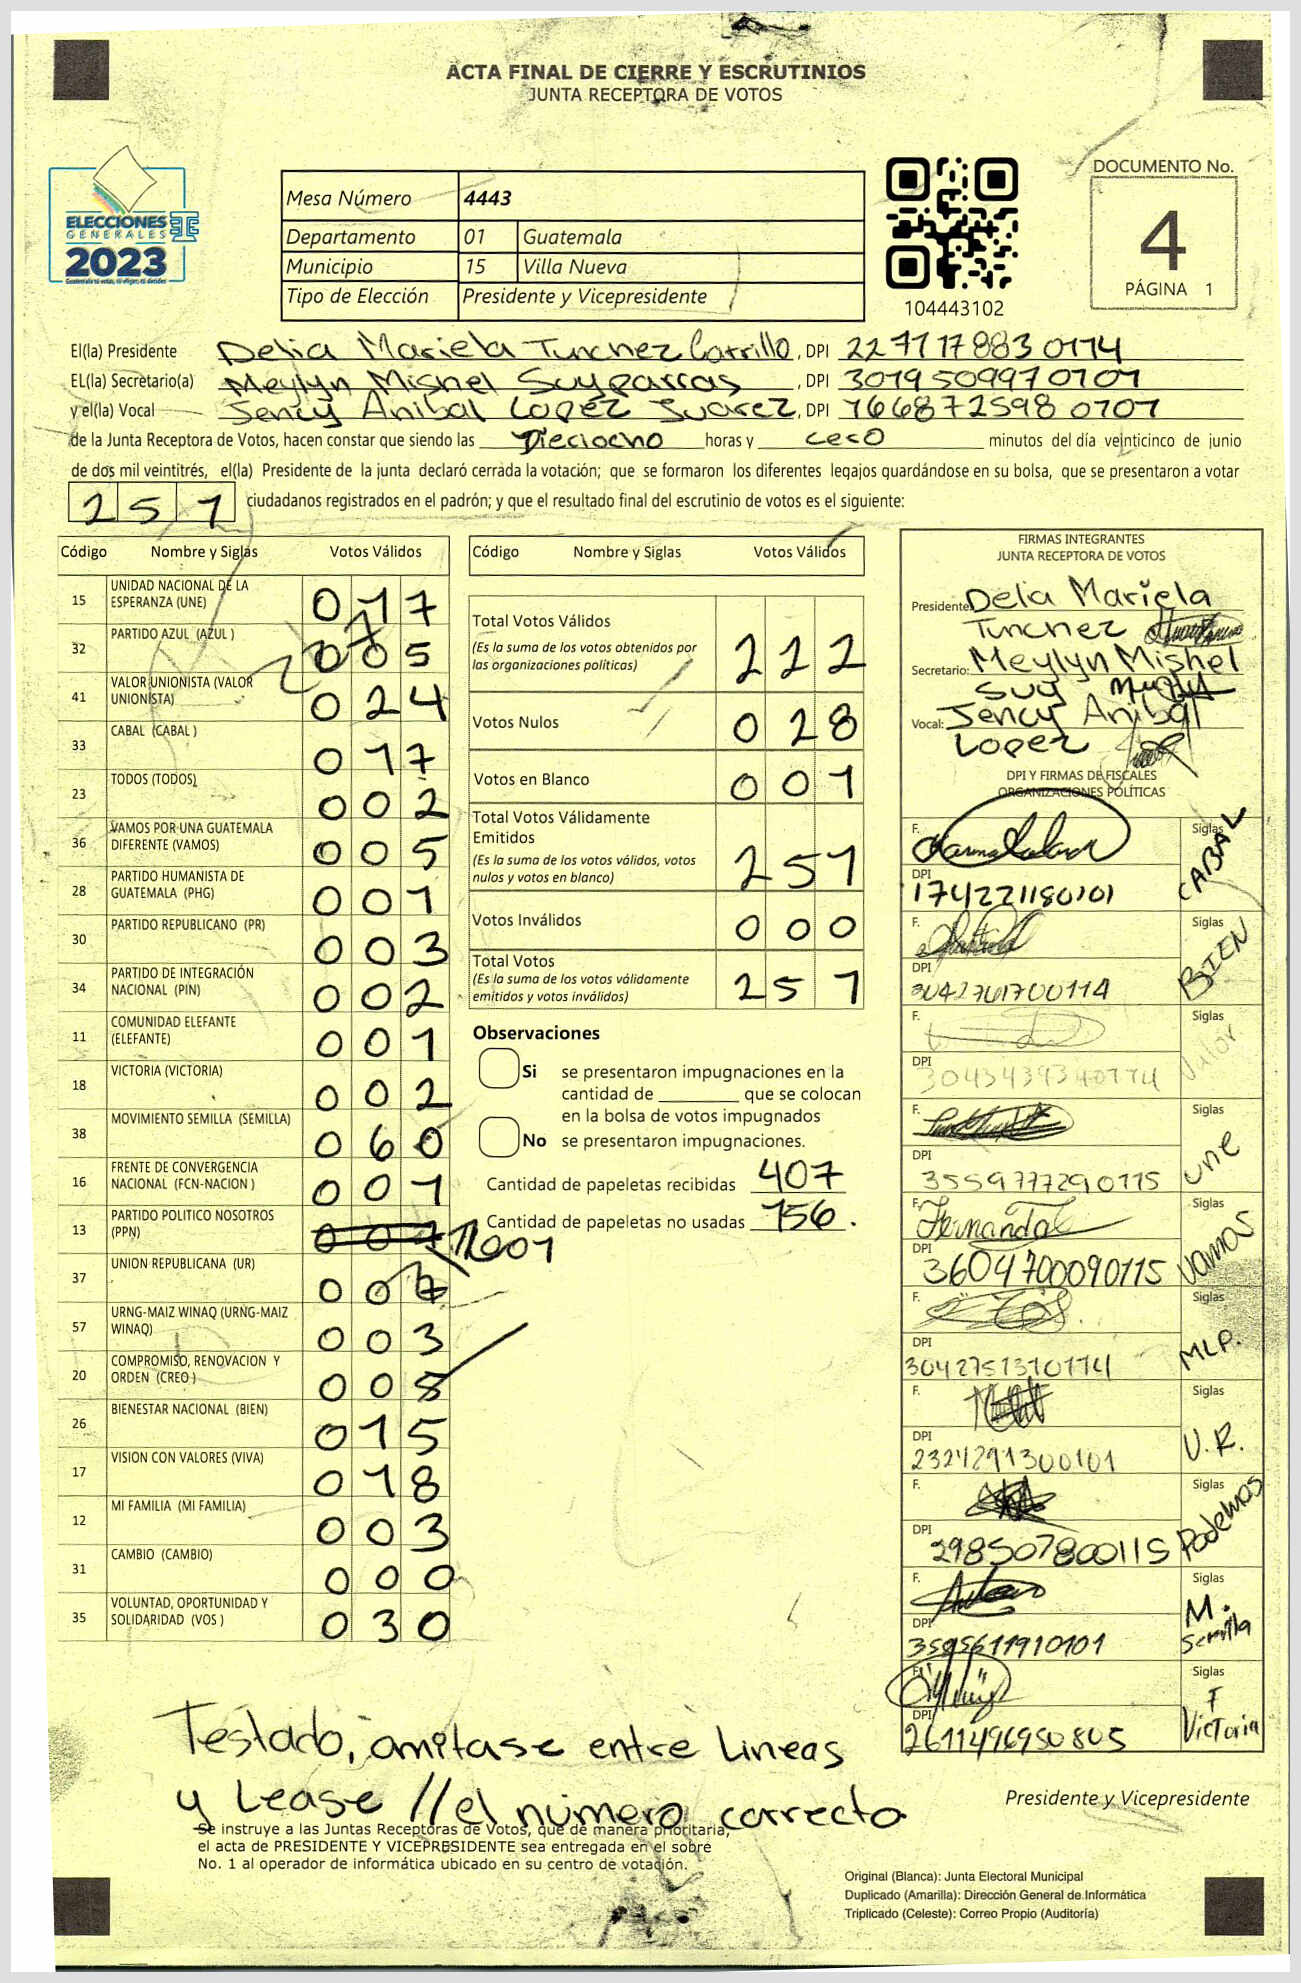 ACTA FINAL DE CIERRE Y ESCRUTINIOS
JUNTA RECEPTORA DE VOTOS
ELECCIONES
GENERALES
2023
Mesa Número 4443
Departamento 01 Guatemala
Municipio 15 Villa Nueva
Tipo de Elección Presidente y Vicepresidente
104443102
DOCUMENTO No.
4
PÁGINA 1
El(la) Presidente Delia Mariela Tunchez Carrillo, DPI 2271178830114
EL(la) Secretario(a) Meylyn Mishel Suy parras, DPI 3019509970101
y el(la) Vocal Jency Anibal Lopez Juarez, DPI 1668725980101
de la Junta Receptora de Votos, hacen constar que siendo las Dieciocho horas y cero minutos del día veinticinco de junio
de dos mil veintitrés, el(la) Presidente de la junta declaró cerrada la votación; que se formaron los diferentes legajos guardándose en su bolsa, que se presentaron a votar
251 ciudadanos registrados en el padrón; y que el resultado final del escrutinio de votos es el siguiente:
Código Nombre y Siglas Votos Válidos
15 UNIDAD NACIONAL DE LA ESPERANZA (UNE) 017
32 PARTIDO AZUL (AZUL ) 005
41 VALOR UNIONISTA (VALOR UNIONISTA) 024
33 CABAL (CABAL ) 017
23 TODOS (TODOS) 002
36 VAMOS POR UNA GUATEMALA DIFERENTE (VAMOS) 005
28 PARTIDO HUMANISTA DE GUATEMALA (PHG) 001
30 PARTIDO REPUBLICANO (PR) 003
34 PARTIDO DE INTEGRACIÓN NACIONAL (PIN) 002
11 COMUNIDAD ELEFANTE (ELEFANTE) 001
18 VICTORIA (VICTORIA) 002
38 MOVIMIENTO SEMILLA (SEMILLA) 060
16 FRENTE DE CONVERGENCIA NACIONAL (FCN-NACION ) 001
13 PARTIDO POLITICO NOSOTROS (PPN) 001
37 UNION REPUBLICANA (UR) 00
57 URNG-MAIZ WINAQ (URNG-MAIZ WINAQ) 003
20 COMPROMISO, RENOVACION Y ORDEN (CREO ) 008
26 BIENESTAR NACIONAL (BIEN) 015
17 VISION CON VALORES (VIVA) 018
12 MI FAMILIA (MI FAMILIA) 003
31 CAMBIO (CAMBIO) 000
35 VOLUNTAD, OPORTUNIDAD Y SOLIDARIDAD (VOS ) 030
Código Nombre y Siglas Votos Válidos
Total Votos Válidos
(Es la suma de los votos obtenidos por
las organizaciones políticas) 222
Votos Nulos 028
Votos en Blanco 001
Total Votos Válidamente
Emitidos
(Es la suma de los votos válidos, votos
nulos y votos en blanco) 251
Votos Inválidos 000
Total Votos
(Es la suma de los votos válidamente
emitidos y votos inválidos) 251
Observaciones
Si se presentaron impugnaciones en la
cantidad de ________ que se colocan
en la bolsa de votos impugnados
No se presentaron impugnaciones.
Cantidad de papeletas recibidas 407
Cantidad de papeletas no usadas 156.
FIRMAS INTEGRANTES
JUNTA RECEPTORA DE VOTOS
Presidente: Delia Mariela
Tunchez
Secretario: Meylyn Mishel
Suy
Vocal: Jency Anibal
Lopez
DPI Y FIRMAS DE FISCALES
ORGANIZACIONES POLÍTICAS
F. Siglas CABAL
DPI 174221180101
F. Siglas BIEN
DPI 3042761700114
F. Siglas Valor
DPI 3043439340114
F. Siglas une
DPI 3559777290115
F. Fernanda Siglas vamos
DPI 3604700090115
F. Siglas MLP.
DPI 3042751310114
F. Siglas U.R.
DPI 2324291300101
F. Siglas Podemos
DPI 298507800115
F. Siglas M. Semilla
DPI 3595611910101
F. Siglas F Victoria
DPI 2611496950805
Testado, omitase entre Lineas
y Lease //el número correcto
Se instruye a las Juntas Receptoras de Votos, que de manera prioritaria,
el acta de PRESIDENTE Y VICEPRESIDENTE sea entregada en el sobre
No. 1 al operador de informática ubicado en su centro de votación.
Presidente y Vicepresidente
Original (Blanca): Junta Electoral Municipal
Duplicado (Amarilla): Dirección General de Informática
Triplicado (Celeste): Correo Propio (Auditoría)